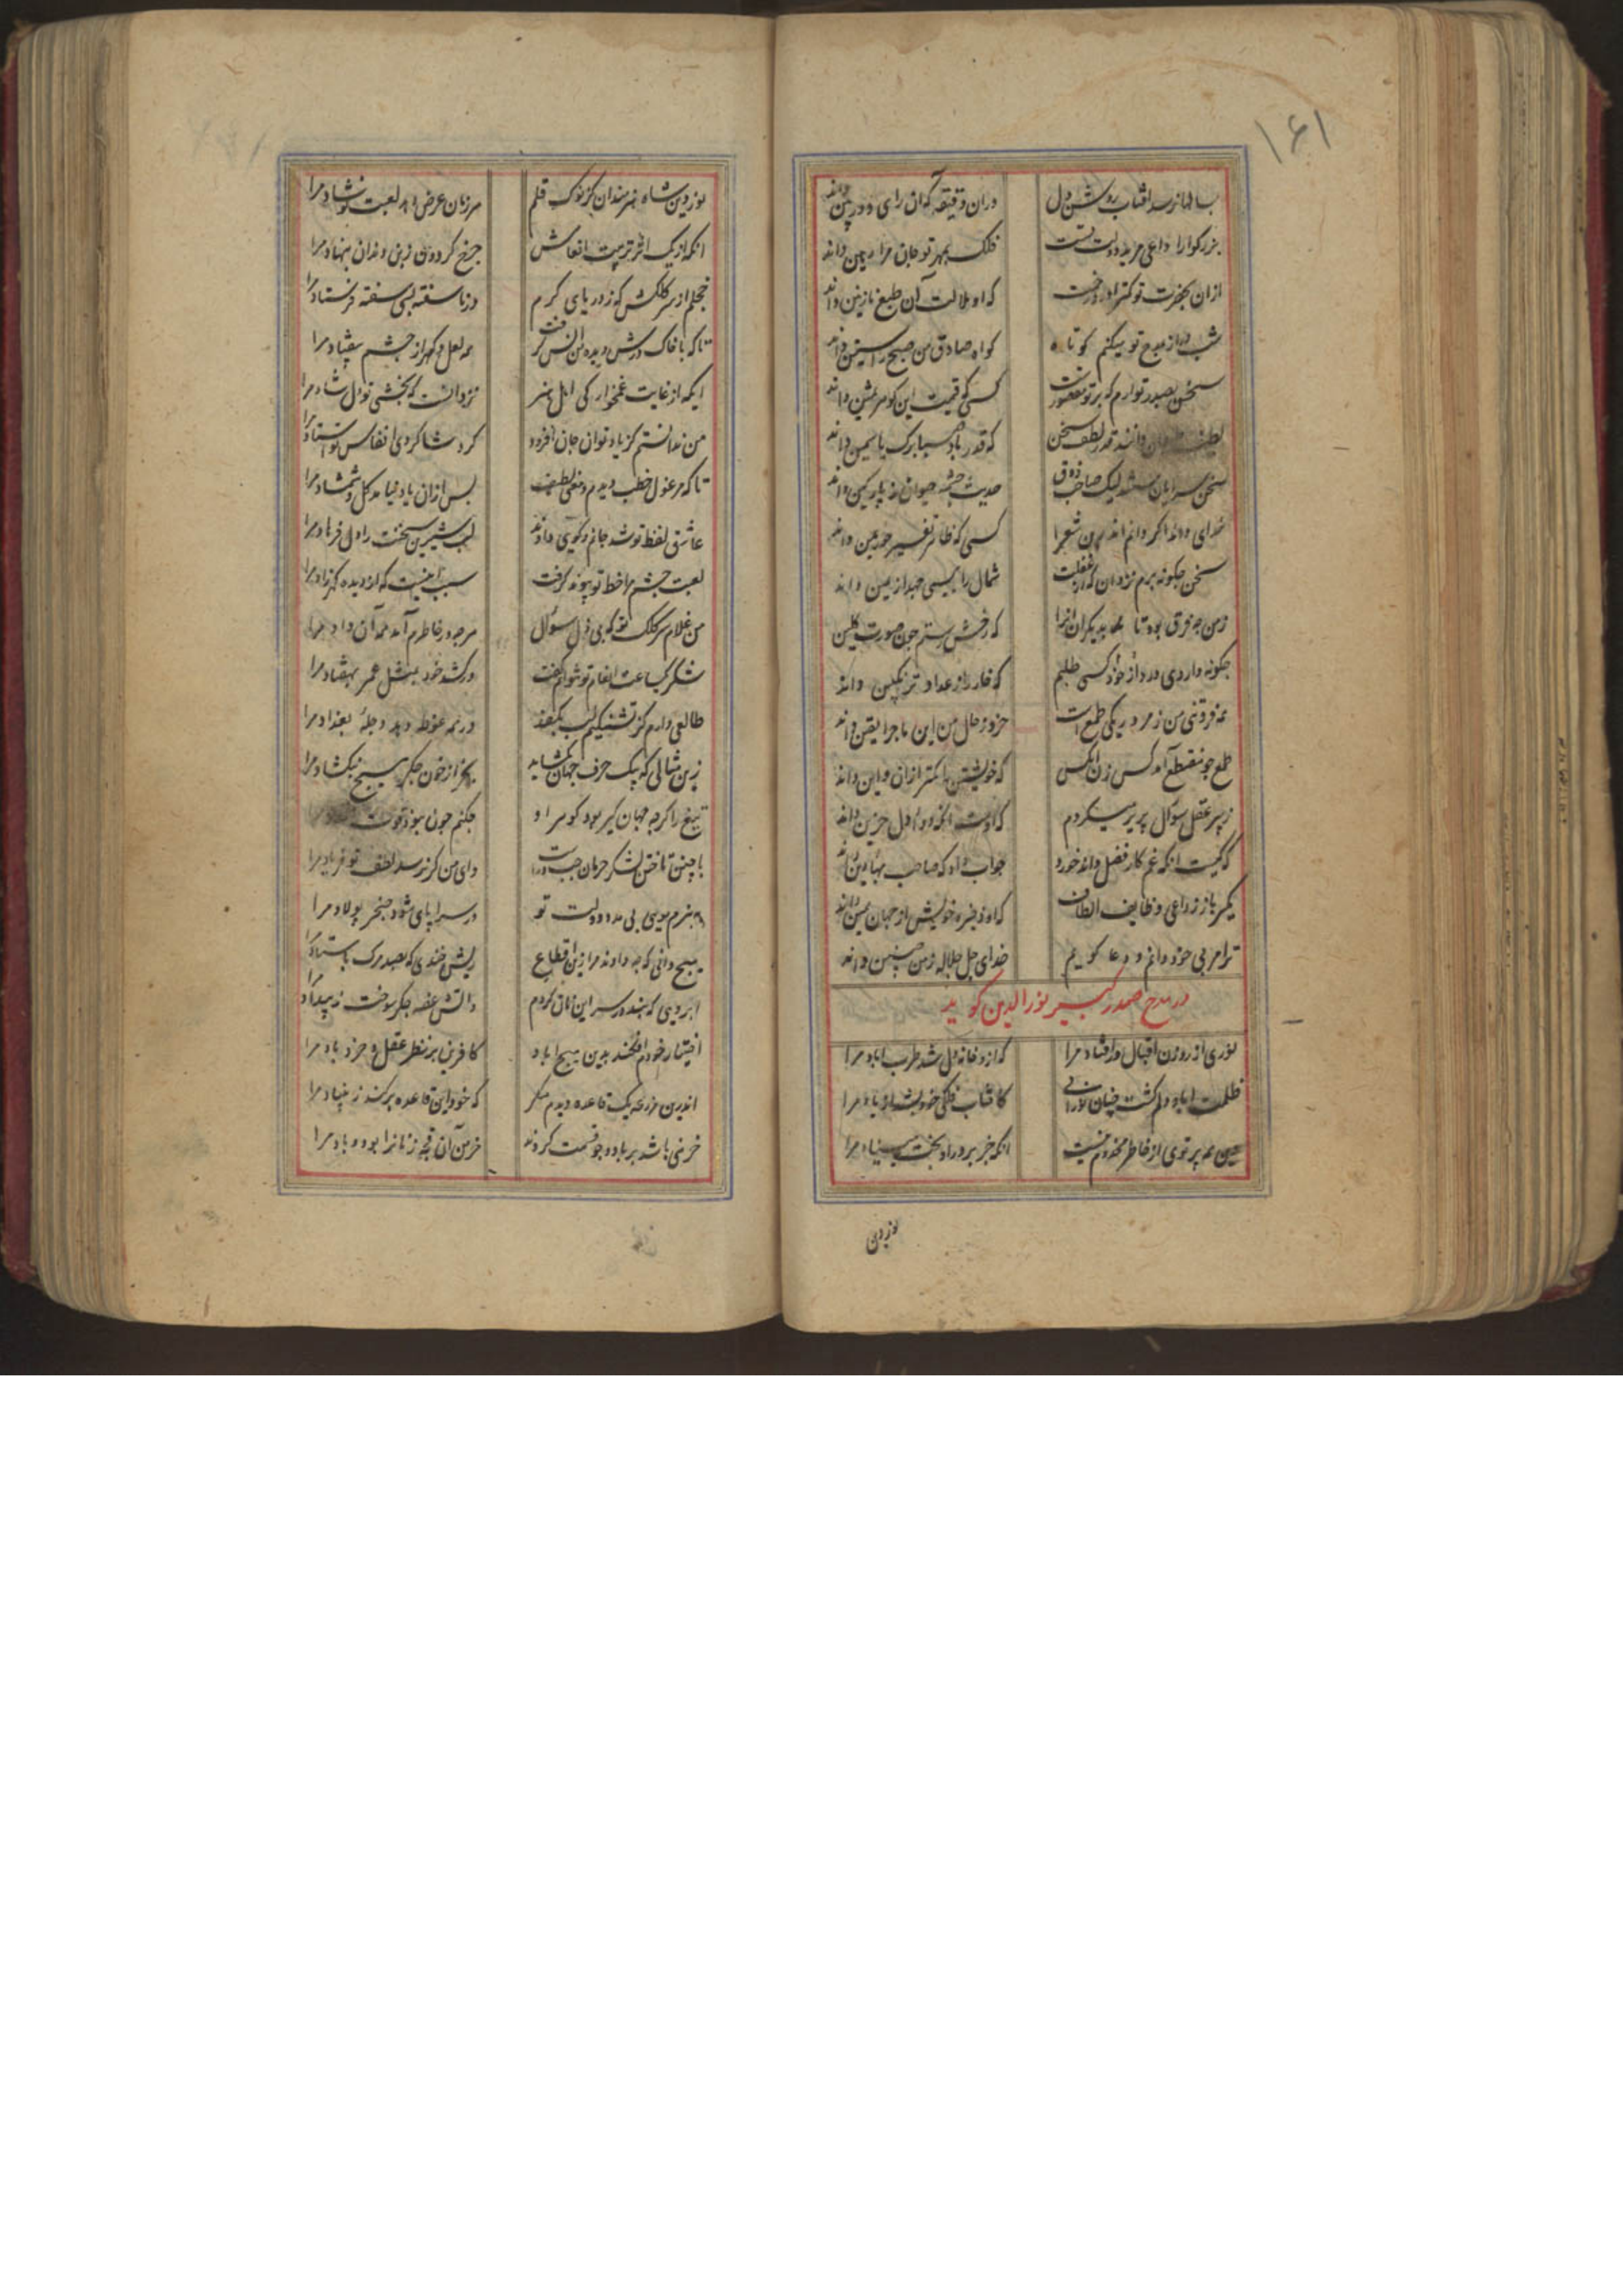 ۱۶۱
بسالها نرسد افتاب روشن دل
دران دقیقه که ان رای دوربین داند
بزرکوارا داعی مرید دولت تست
فلک بمهر تو جان مرا رهین داند
ازان بحضرت تو کمتر اورد زحمت
که او ملالت آن طبع نازنین داند
شب دراز بمدح تو میکنم کوتاه
کواه صادق من صبح راستین داند
کسی که قیمت این کوهر ثمین داند
لطف سخن
که قدر باد صبا برک یاسمین داند
سخن سرایان هستند لیک صاحب ذوق
حدیث چشمه حیوان نه پارکین داند
خدای داند اکر دانم اندرین شعرا
کسی که ظاهر تفسیر حمد بین داند
سخن چکونه برم نزد ان که از غفلت
شمال را بیسی جهد از یمین داند
زمن چه فرق بود تا بدیکران انرا
که رخش رستم چون صورت کلین
چکونه داروی درد از خود کسی طلبم
که خار را ز عداد ترنکبین داند
همه فروتنی من ز مردریکی طمع است
خرد ز حال من این ماجرا یقین داند
طمع چو منقطع آمد کس زن انکس
که خویشتن را کمتر ازان و این داند
ز پیر عقل سوال پریر میکردم
که اوست انکه دوای دل حزین داند
که کیست انکه غم کار فضل داند خورد
جواب داد که صاحب بهاء دین داند
مکیر باز ز داعی وظایف الطاف
که او ذخیره خویش از جهان همین داند
ترا مربی خود دانم و دعا کویم
خدای جل جلاله زمن چنین داند
در مدح صدر کبیر نورالدین کوید
نوری از روزن اقبال در افتاد مرا
که ازو خانه دل شد طرب اباد مرا
ظلمت اباد دلم کشت چنان نورانی
کافتاب فلکی خود بشد از یاد مرا
این همه پرتوی از خاطر مخدوم منست
انکه جز بر در او بخت بننهاد مرا
نور دین
نور دین شاه هنرمندان کز نوک قلم
هر زمان عرض دهد لعبت نوشاد مرا
انکه از یک اثر تربیت انعامش
چرخ کردون ز بن دندان بنهاد مرا
خجلم از سر کلکش که ز دریای کرم
در ناسفته بسی سفته فرستاد مرا
تاکه با خاک درش دیده من انس کرفت
همه لعل و کهر از چشم بیفتاد مرا
ایکه از غایت غمخوارکی اهل هنر
نزد انست که بخشی تو دل شاد مرا
من ندانستم کز یاد توان جان افزود
کرد شاکردی انفاس تو استاد مرا
تا که مرغول خط دیدم و معنی لطیف
بس ازان یاد نیامد کل و شمشاد مرا
عاشق لفظ تو شد جانم و کویی دادند
لب شیرین سخنت را دل فرهاد مرا
لعبت چشم مرا خط تو پیوند کرفت
سبب اینست که از دیده کهر زاد مرا
من غلام سر کلک تو که بی ذل سوال
هرچه در خاطرم آمد همه آن داد مرا
شکر یکساعت انعام تو نتوانم کفت
ور کشد خود بمثل عمر بهفتاد مرا
طالعی دارم کز تشنکیم لب بکفد
ور همه غوطه دهد دجله بغداد مرا
زین مثالی که بیک حرف جهان بکشاید
بجز از خون جکر هیچ نبکشاد مرا
تیغ را کرچه جهان کیر بود کوهر او
چکنم چون نبود قوت
با چنین تاختن لشکر حرمان چپ و راست
وای من کر نرسد لطف تو فریاد مرا
بهنرم مویی بی مدد دولت تو
در سراپای شود خنجر پولاد مرا
هیچ دانی که چه دادند مرا زین اقطاع
ریش خندی که بصد مرک باستاد مرا
ابرویی که بدو بر سر این نان کردم
واتش غصه جکر سوخت ز بیداد مرا
اختیار خودم افکند بدین هیچ اباد
کافرین بر نظر عقل و خرد باد مرا
اندرین مزرعه یک قاعده دیدم منکر
که خود این قاعده برکند ز بنیاد مرا
خرمنی باشد بر باد و چو قسمت کردند
خرمن آن قحبه زنانرا بود و باد مرا